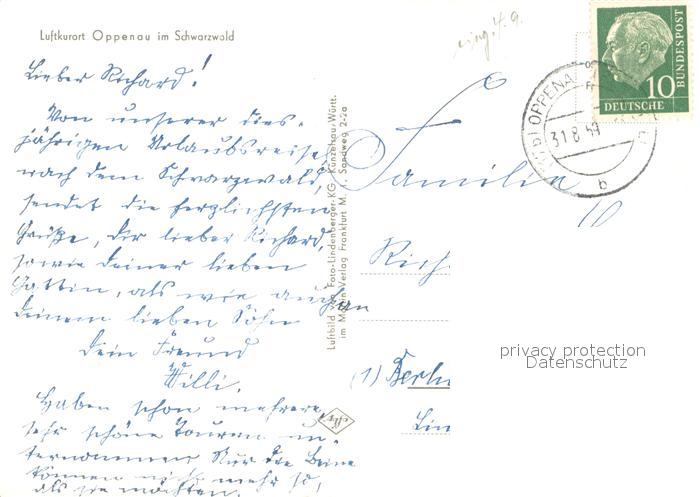 Luftkurort Oppenau im Schwarzwald
eing. 4.9.
Lieber Richard!
Von unserer dies-
jährigen Urlaubsreise
nach dem Schwarzwald,
sendet die herzlichsten
Grüße, Dir lieber Richard,
sowie Deiner lieben
Gattin, als wie auch an
Deinem lieben Sohn
Dein Freund
Willi.
Haben schon mehrere
sehr schöne Touren un-
ternommen. Nur die Beine
können nicht mehr so,
als sie möchten.
Luftbild v. Foto-Lindenberger-KG. Künzelsau-Württ.
im Verlag Frankfurt M. 1, Sandweg 2-2a
Familie
Rich
(1) Berlin
Lin
OPPENAU
31.8.59
b
10
DEUTSCHE
BUNDESPOST
privacy protection
Datenschutz